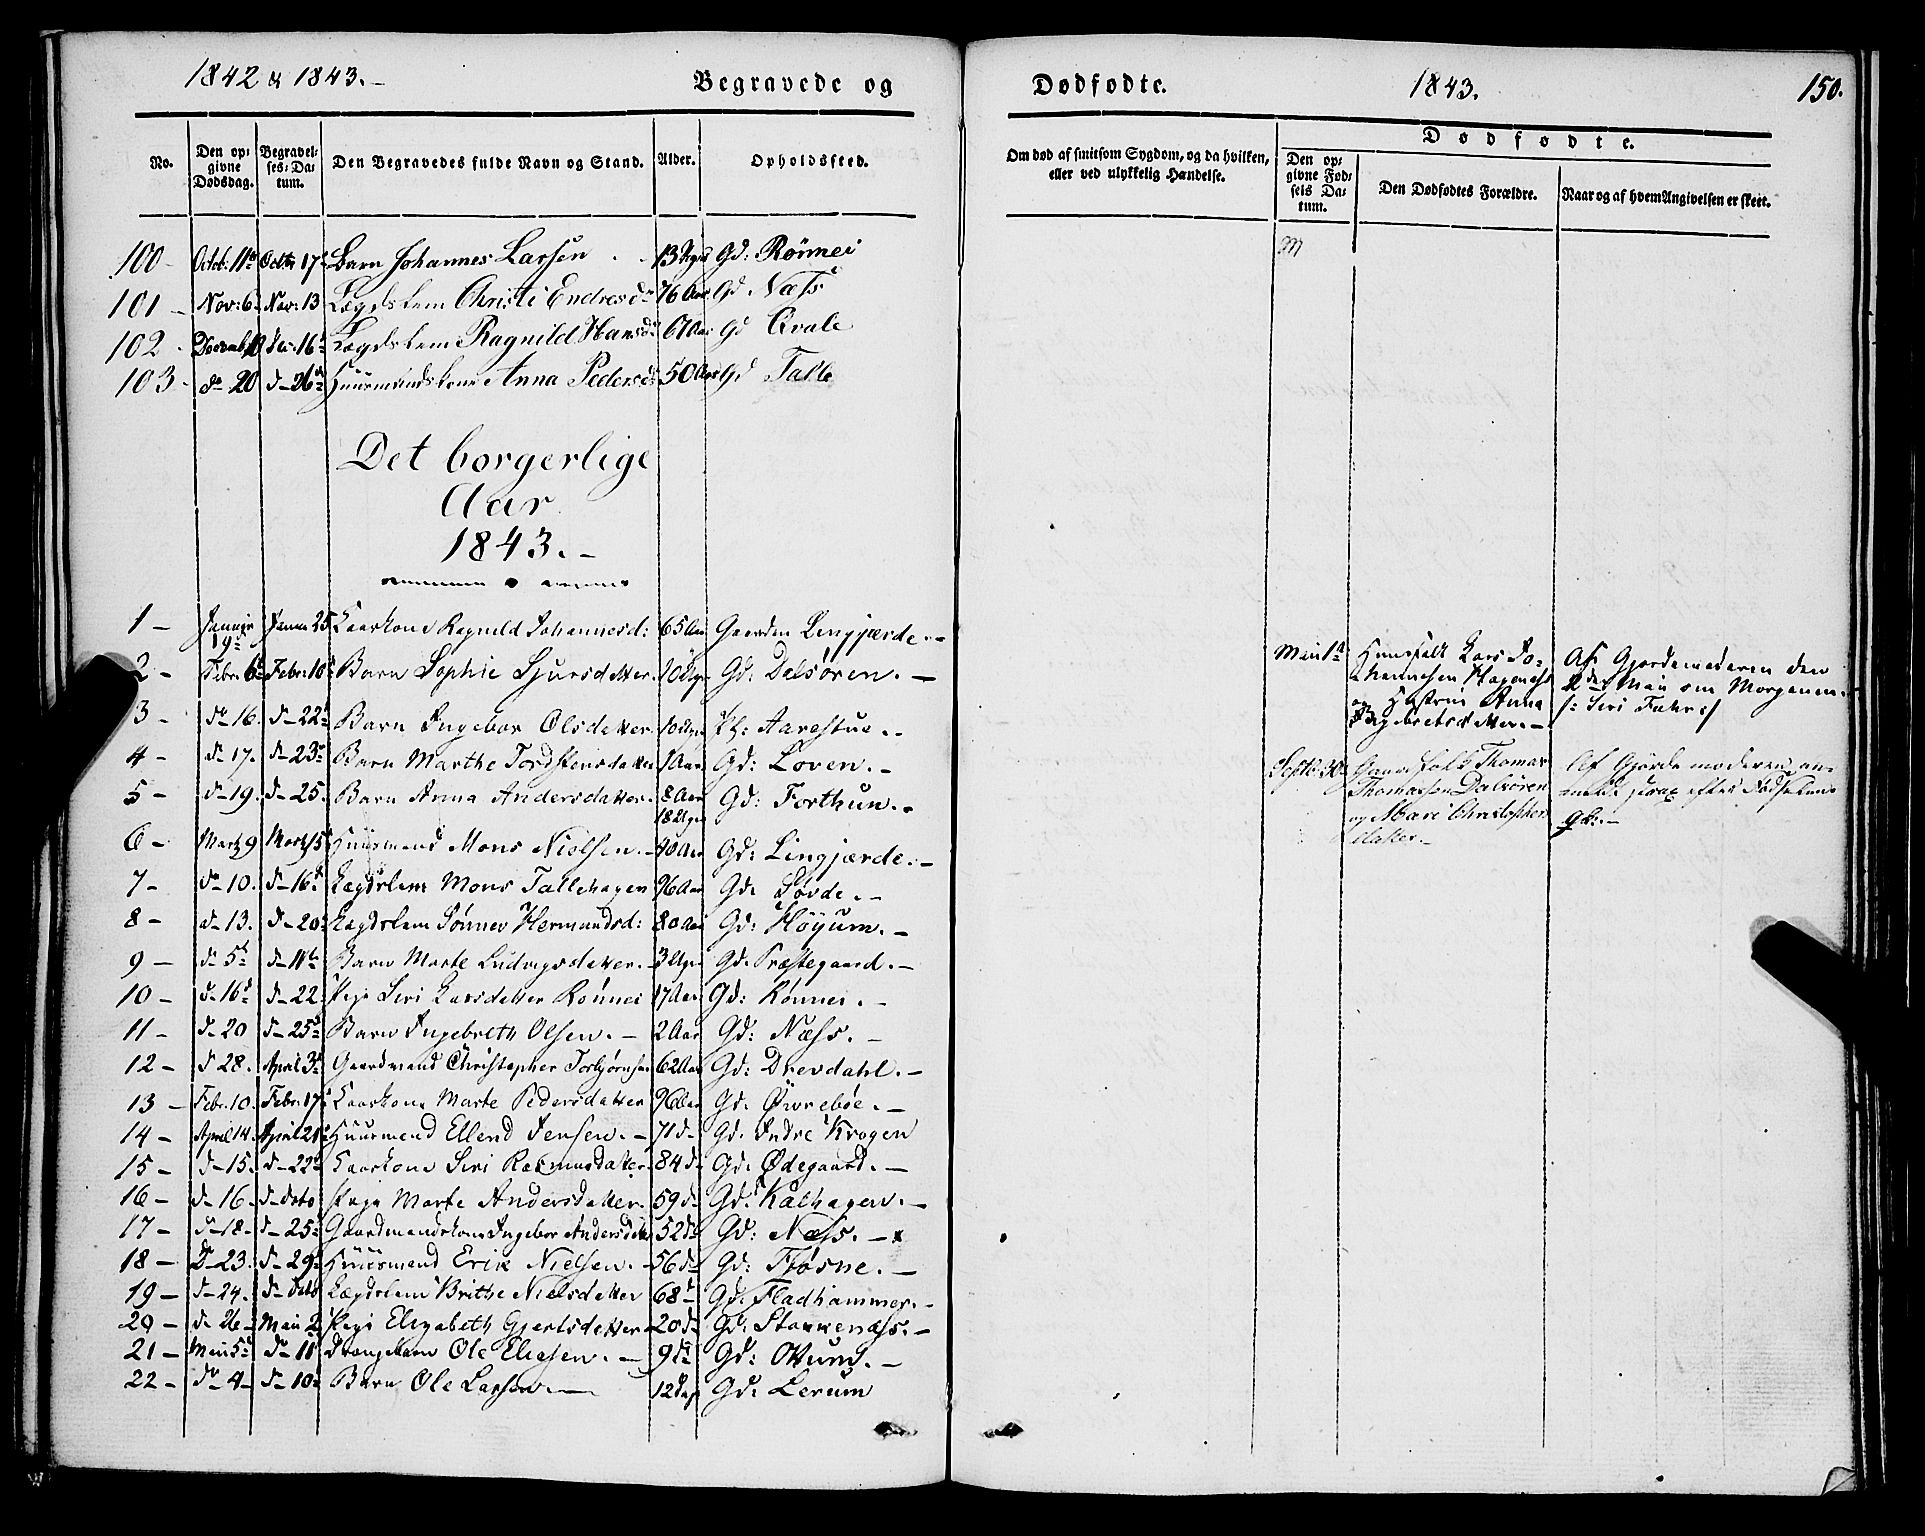 1842 & 1843.-
Begravede og
No.
Den op-
givne
Dødsdag.
Begravel-
ses-Da-
tum.
Den Begravedes fulde Navn og Stand.
Alder.
Opholdssted.
100 - Octob: 11te Octbr 17 Barn Johannes Larsen 13 Uger Gd: Rönnei
101 - Nov: 6 Nov: 13 Lægdslem Christi Endresdr 76 Aar Gd. Næss
102 - 10 16 Lægdslem Ragnild Hansdr 67 Aar Gd Qvale
103 - do 20 d- 26 Huusmandskone Anna Pedersdr 50 Aar Gd Talle
Det borgerlige
Aar
1843.-
1 - Januar 19de Januar 25 Kaarkone Ragnild Johannesd: 65 Aar Gaarden Lingjærde.-
2 - Febr. 6 Febr: 10 Barn Sophie Sjursdatter. 10 Uger Gd: Dalsøren.-
3 - do 16. d- 22 Barn Ingebor Olsdatter 10 Uger Pl: Aarestue.-
4 - d- 17. d- 23 Barn Marthe Tordstensdatter 1 Aar Gd: Loven.-
5 - d- 19. d- 25. Barn Anna Andersdatter. 8 Aar 18 Uger Gd: Forthun.-
6 - Marts 9 Marts 15 Huusmand Mons Nielsen.- 40 Aar Gd: Lingjærde.-
7 - do 10. d- 16 Lægdslem Mons Tallehagen 76 Aar Gd: Søvde.-
8 - d- 13. d- 20 Lægdslem Sønnev Hermundsd: 80 Aar Gd: Høyum.-
9 - d- 5te d- 11te Barn Marte Ludvigsdatter.- 3 Uger Gd. Præstegaard.-
10 - d- 16 d- 22 Pige Siri Larsdatter Rönnei 17 Aar Gd: Rönnei.-
11 - d- 20 d- 25 Barn Ingebreth Olsen.- 2 Aar Gd: Næss.-
12 - d- 28. April 3 Gaardmand Christopher Torbjørnsen 62 Aar Gd: Drevdahl.-
13 - Febr. 10. Febr. 17 Kaarkone Marte Pedersdatter 96 Aar Gd. Øvrebøe.-
14 - April 14. April 21 Huusmand Ellend Jensen.- 71 d- Gd. Indre Krogen
15 - d- 15. d- 22 Kaarkone Siri Rasmusdatter. 84 d- Gd. Ødegaard.-
16 - d- 16 - d- dito Pige Marte Andersdatter. 59 d- Gd: Kalhagen.-
17 - d- 18. d- 25 Gaardmandskone Ingebor Andersdatter 52 do Gd: Næss.-
18 - D- 23. d- 29 Huusmand Erik Nielsen.- 56 d- Gd: Fløsne.-
19 - d- 24. d- dito Lægdslem Brithe Nielsdatter 68 - Gd: Fladhammer.-
20 - d- 26 - Maii 2 Pige Elizabeth Gjertsdatter 20 d- Gd: Stokkenæss.-
21 - Maii 5 do 11 Ole Eliesen.- 9 do Gd: Ottum.-
22 - do 4 - d- 10 Barn Ole Larsen.- 12 Dage Gd: Lerum
Dødfødte.
1843.
150.
Om død af smitsom Sygdom, og da hvilken,
eller ved ulykkelig Hændelse.
Dødfødte.
Den op-
givne Fød-
sels Da-
tum.
Den Dødfødtes Forældre.
Naar og af hvem Angivelsen er skeet.
M
Maii 1 Huusfolk Lars Jo-
hannesen Hagenæss
og Hustrue Anna
Ingebretsdatter.-
Af Gjordemoderen den
2den Maii om Morgenen.
/: Siri Fuhr :/
Septb: 30 Gaardfolk Thomas
Thomassen Dalsøren
og Mari Christopher-
datter.-
Af Gjordemoderen an-
meldt strax efter Fødselens